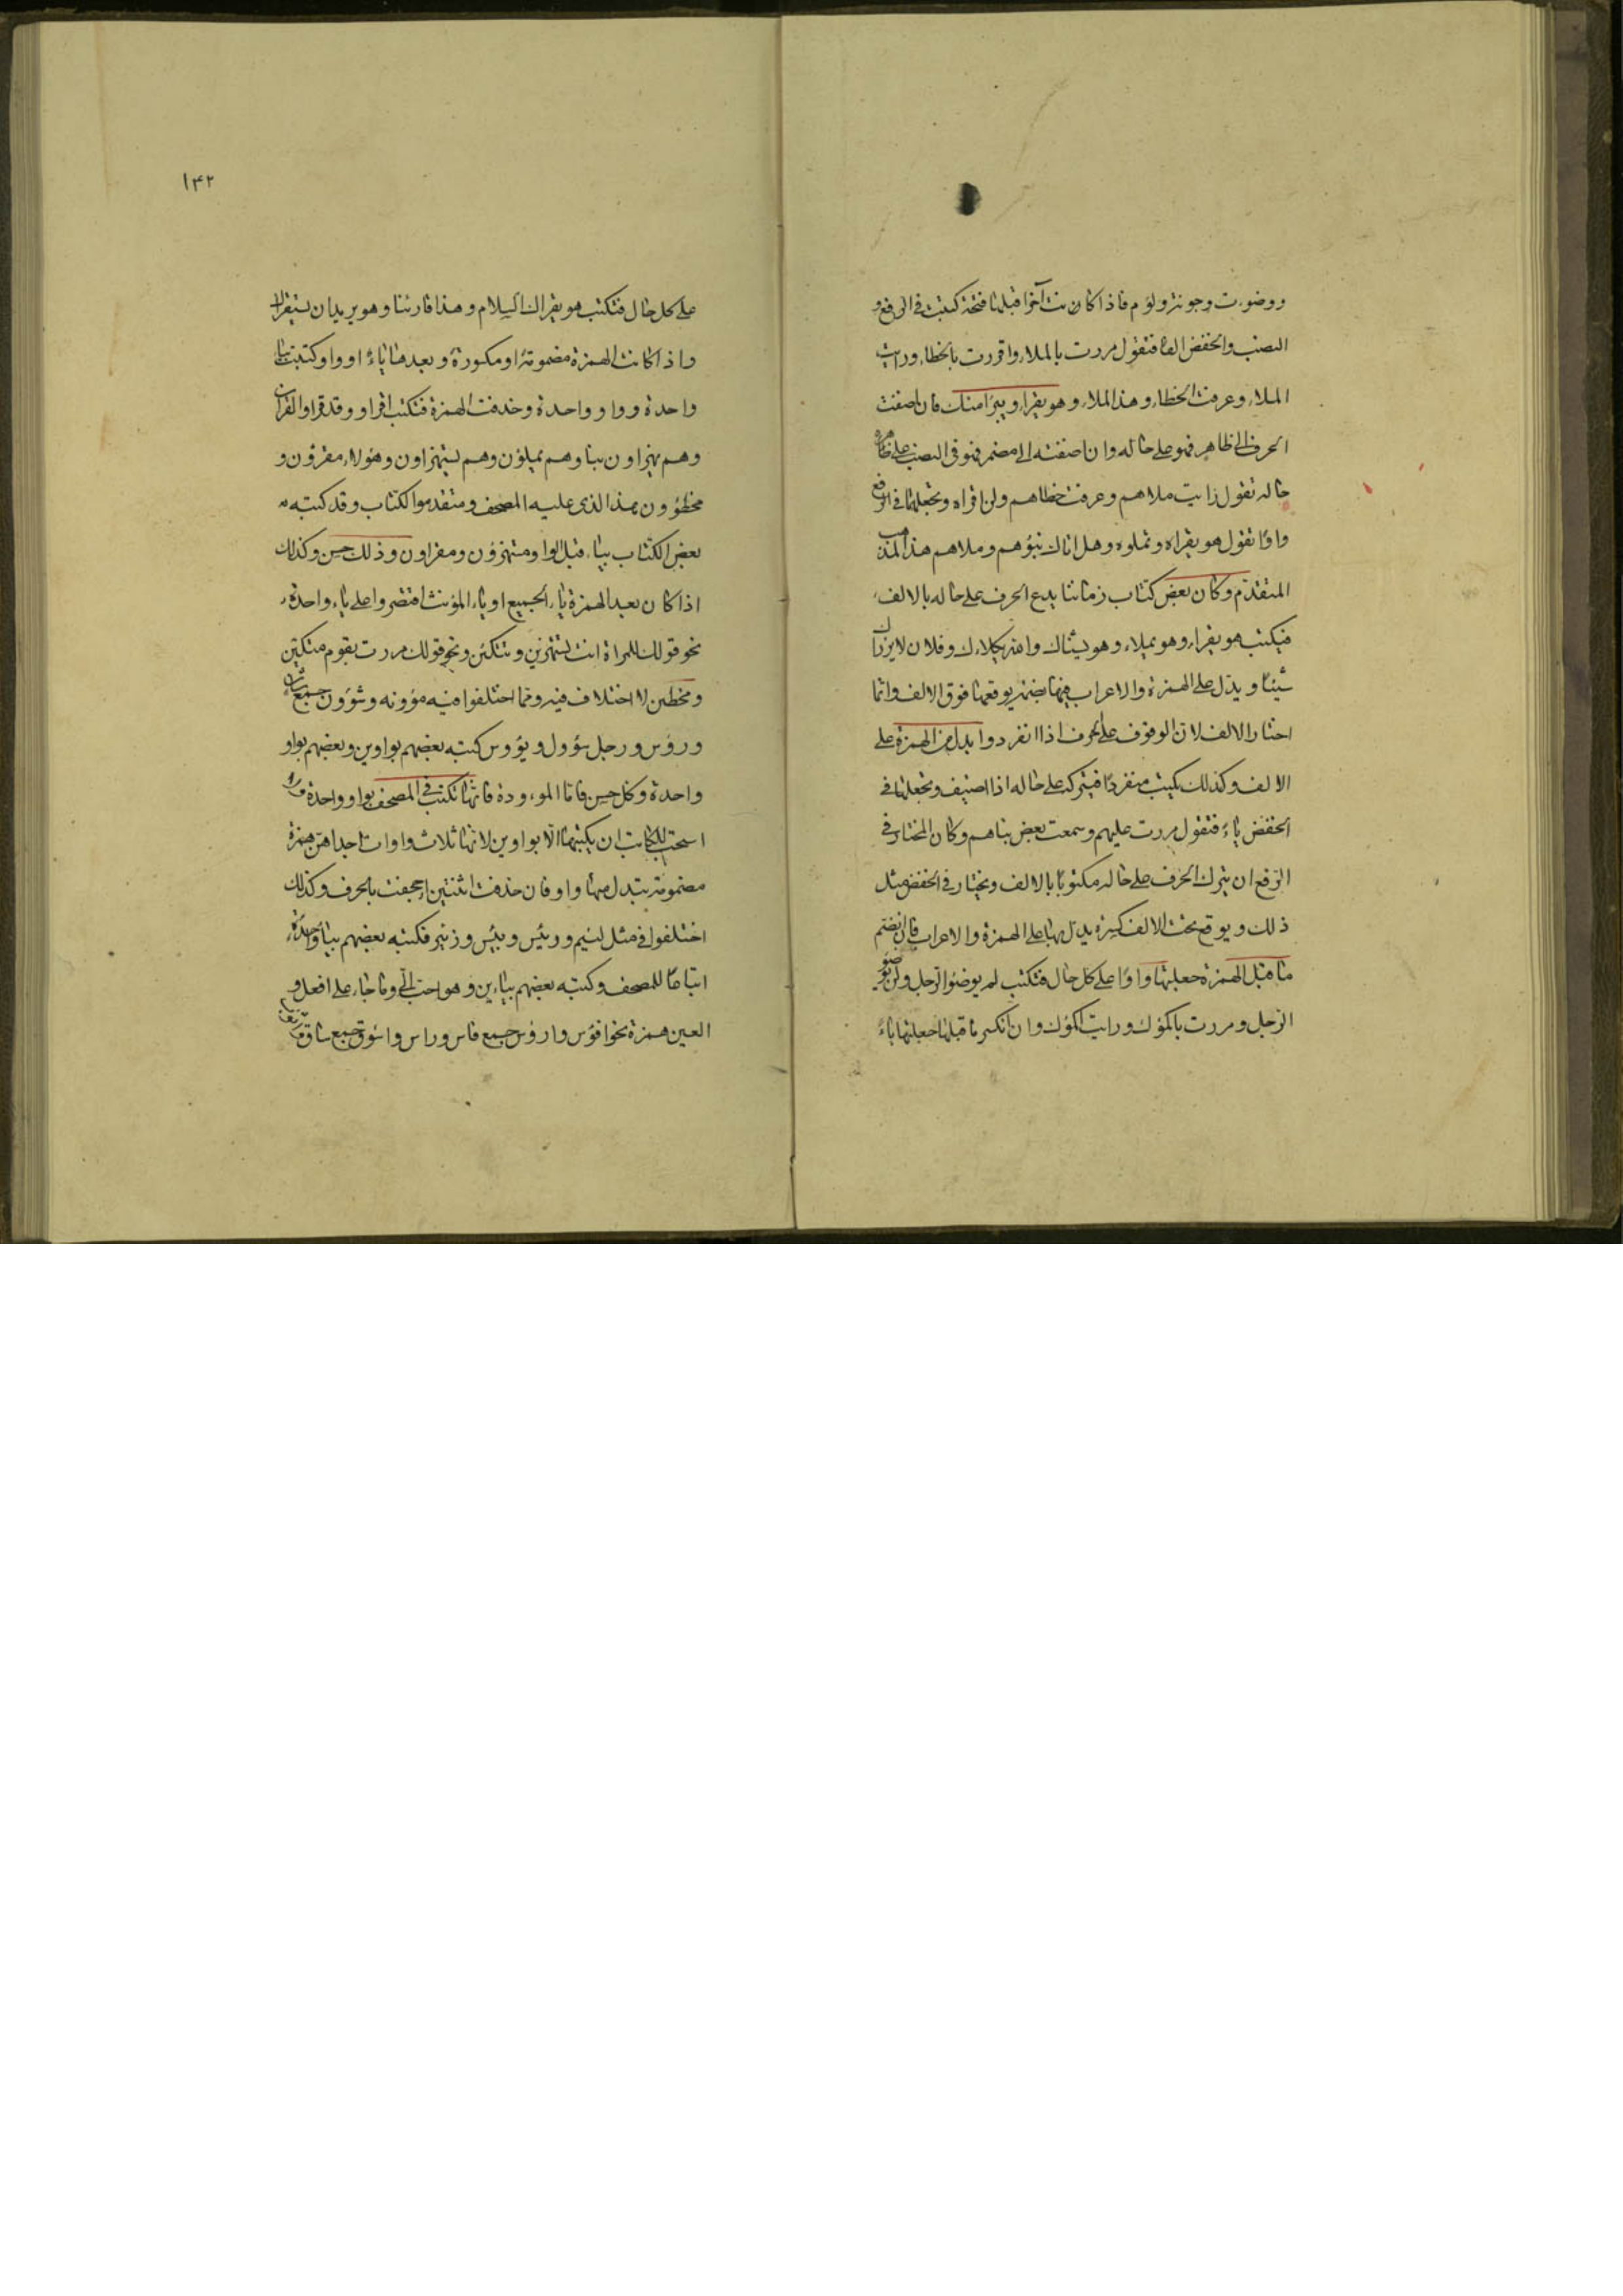 ووضوءت وجونة ولؤم فاذا كانت آخرا قبلها فتحة كتبت فى الرفع و
النصب والخفض الفا فتقول مررت بالملاء واقررت بالخطاء ورايت
الملاء وعرفت الخطاء وهذا الملاء وهو يقراء ويبرا منك فان اضفت
الحرف الى ظاهر فهو على حاله وان اضفته الى مضمر فهو فى النصب على
حاله تقول رايت ملاهم وعرفت خطاهم ولن اقراه وتجعلها فى الرفع
واوا تقول هو يقراه وتملوه وهل اتاك نبؤهم وملاهم هذا المذهب
المتقدم وكان بعض كتاب زماننا يدع الحرف على حاله بالالف
فيكتب هو يقراء وهو يملاء وهو يشناك والله يكلاءك وفلان لا يرزاك
شيئا ويدل على الهمزة والاعراب فيها بضمة يوقعها فوق الالف وانما
اختار الالف لان الوقوف على الحرف اذا انفرد وابدل من الهمزة على
الالف وكذلك يكتب منفردا فيتركه على حاله اذا اضيف وتجعلها فى
الخفض ياء فتقول مررت بمليهم وسمعت بعض بناهم وكان المختار فى
الرفع ان يترك الحرف على حاله مكتوبا بالالف ويختار فى الخفض مثل
ذلك ويوقع تحت الالف كسرة يدل بها على الهمزة والاعراب فان انضم
ما قبل الهمزة جعلتها واوا على كل حال فتكتب لم يوضؤ الرجل ولن يوضؤ
الرجل ومررت باكمؤك ورايت اكمؤك وان انكسر ما قبلها جعلتها ياء
١٤٢
على كل حال فتكتب هو يقراك السلام وهذا قارئنا وهو يريد ان يستقراك
واذا كانت الهمزة مضمومة او مكسورة وبعدها ياء او واو كتبت بياء
واحدة وواو واحدة وحذفت الهمزة فتكتب اقراو وقد قراوا القران
وهم يهزاون بنا وهم يملؤن وهم يستهزاون وهؤلاء مقرؤن و
مخطؤون هذا الذى عليه المصحف ومتقدموا الكتاب وقد كتبه
بعض الكتاب بياء قبل الواو مستهزؤن ومقراون وذلك حسن وكذلك
اذا كان بعد الهمزة ياء الجميع او ياء المؤنث اقتصروا على ياء واحدة
نحو قولك للمراة انت تستهزين وتتكئن ونحو قولك مررت بقوم متكئين
ومخطين لا اختلاف فيه ومما اختلفوا فيه مؤونه وشؤون جمع شان
ورؤس ورجل سؤول ويؤوس كتبه بعضهم بواوين وبعضهم بواو
واحدة وكل حسن فاما الموءودة فانها تكتب فى المصحف بواو واحدة ولا
استحب للكاتب ان يكتبها الا بواوين لانها ثلاث واوات احداهن همزة
مضمومة يبدل منها واو فان حذفت اثنتين اجحفت بالحرف وكذلك
اختلفوا فى مثل لئيم ورئيس وبئيس وزئير فكتبه بعضهم بياء واحدة
اتباعا للمصحف وكتبه بعضهم بياءين وهو احب الى وما جاء على افعل و
العين همزة نحو افؤس وارؤس جمع فاس وراس واسؤق جمع ساق